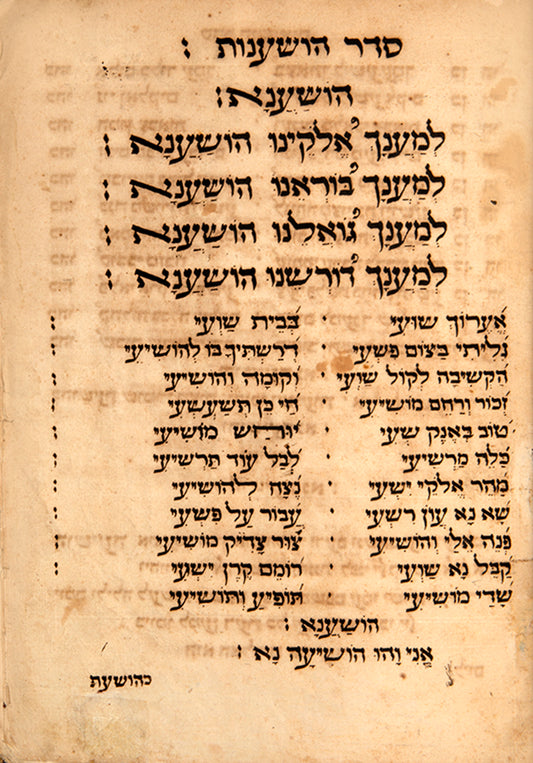 סדר הושענות :
הוֹשַׁעֲנָא :
לְמַעֲנָךְ אֱלֹקֵינוּ הוֹשַׁעֲנָא :
לְמַעֲנָךְ בּוֹרְאֵנוּ הוֹשַׁעֲנָא :
לְמַעֲנָךְ גּוֹאֲלֵנוּ הוֹשַׁעֲנָא :
לְמַעֲנָךְ דּוֹרְשֵׁנוּ הוֹשַׁעֲנָא :
אֶעֱרוֹךְ שׁוּעִי · בְּבֵית שַׁוְעִי :
גִּלִּיתִי בַצּוֹם פִּשְׁעִי · דְּרַשְׁתִּיךָ בּוֹ לְהוֹשִׁיעִי :
הַקְשִׁיבָה לְקוֹל שַׁוְעִי · וְקוּמָה וְהוֹשִׁיעִי :
זְכוֹר וְרַחֵם מוֹשִׁיעִי · חַי כֵּן תְּשַׁעְשְׁעִי :
טוֹב בְּאֶנֶק שְׁעִי · יוּחַשׁ מוֹשִׁיעִי :
כַּלֵּה מַרְשִׁיעִי · לְבַל עוֹד תַּרְשִׁיעִי :
מַהֵר אֱלֹקֵי יִשְׁעִי · נֶצַח לְהוֹשִׁיעִי :
שָׂא נָא עֲוֹן רִשְׁעִי · עֲבוֹר עַל פִּשְׁעִי :
פְּנֵה אֵלַי וְהוֹשִׁיעִי · צוּר צַדִּיק מוֹשִׁיעִי :
קַבֵּל נָא שַׁוְעִי · רוֹמֵם קֶרֶן יִשְׁעִי :
שַׁדַּי מוֹשִׁיעִי · תּוֹפִיעַ וְתוֹשִׁיעִי
הוֹשַׁעֲנָא :
אֲנִי וָהוּ הוֹשִׁיעָה נָּא :
כהושעת